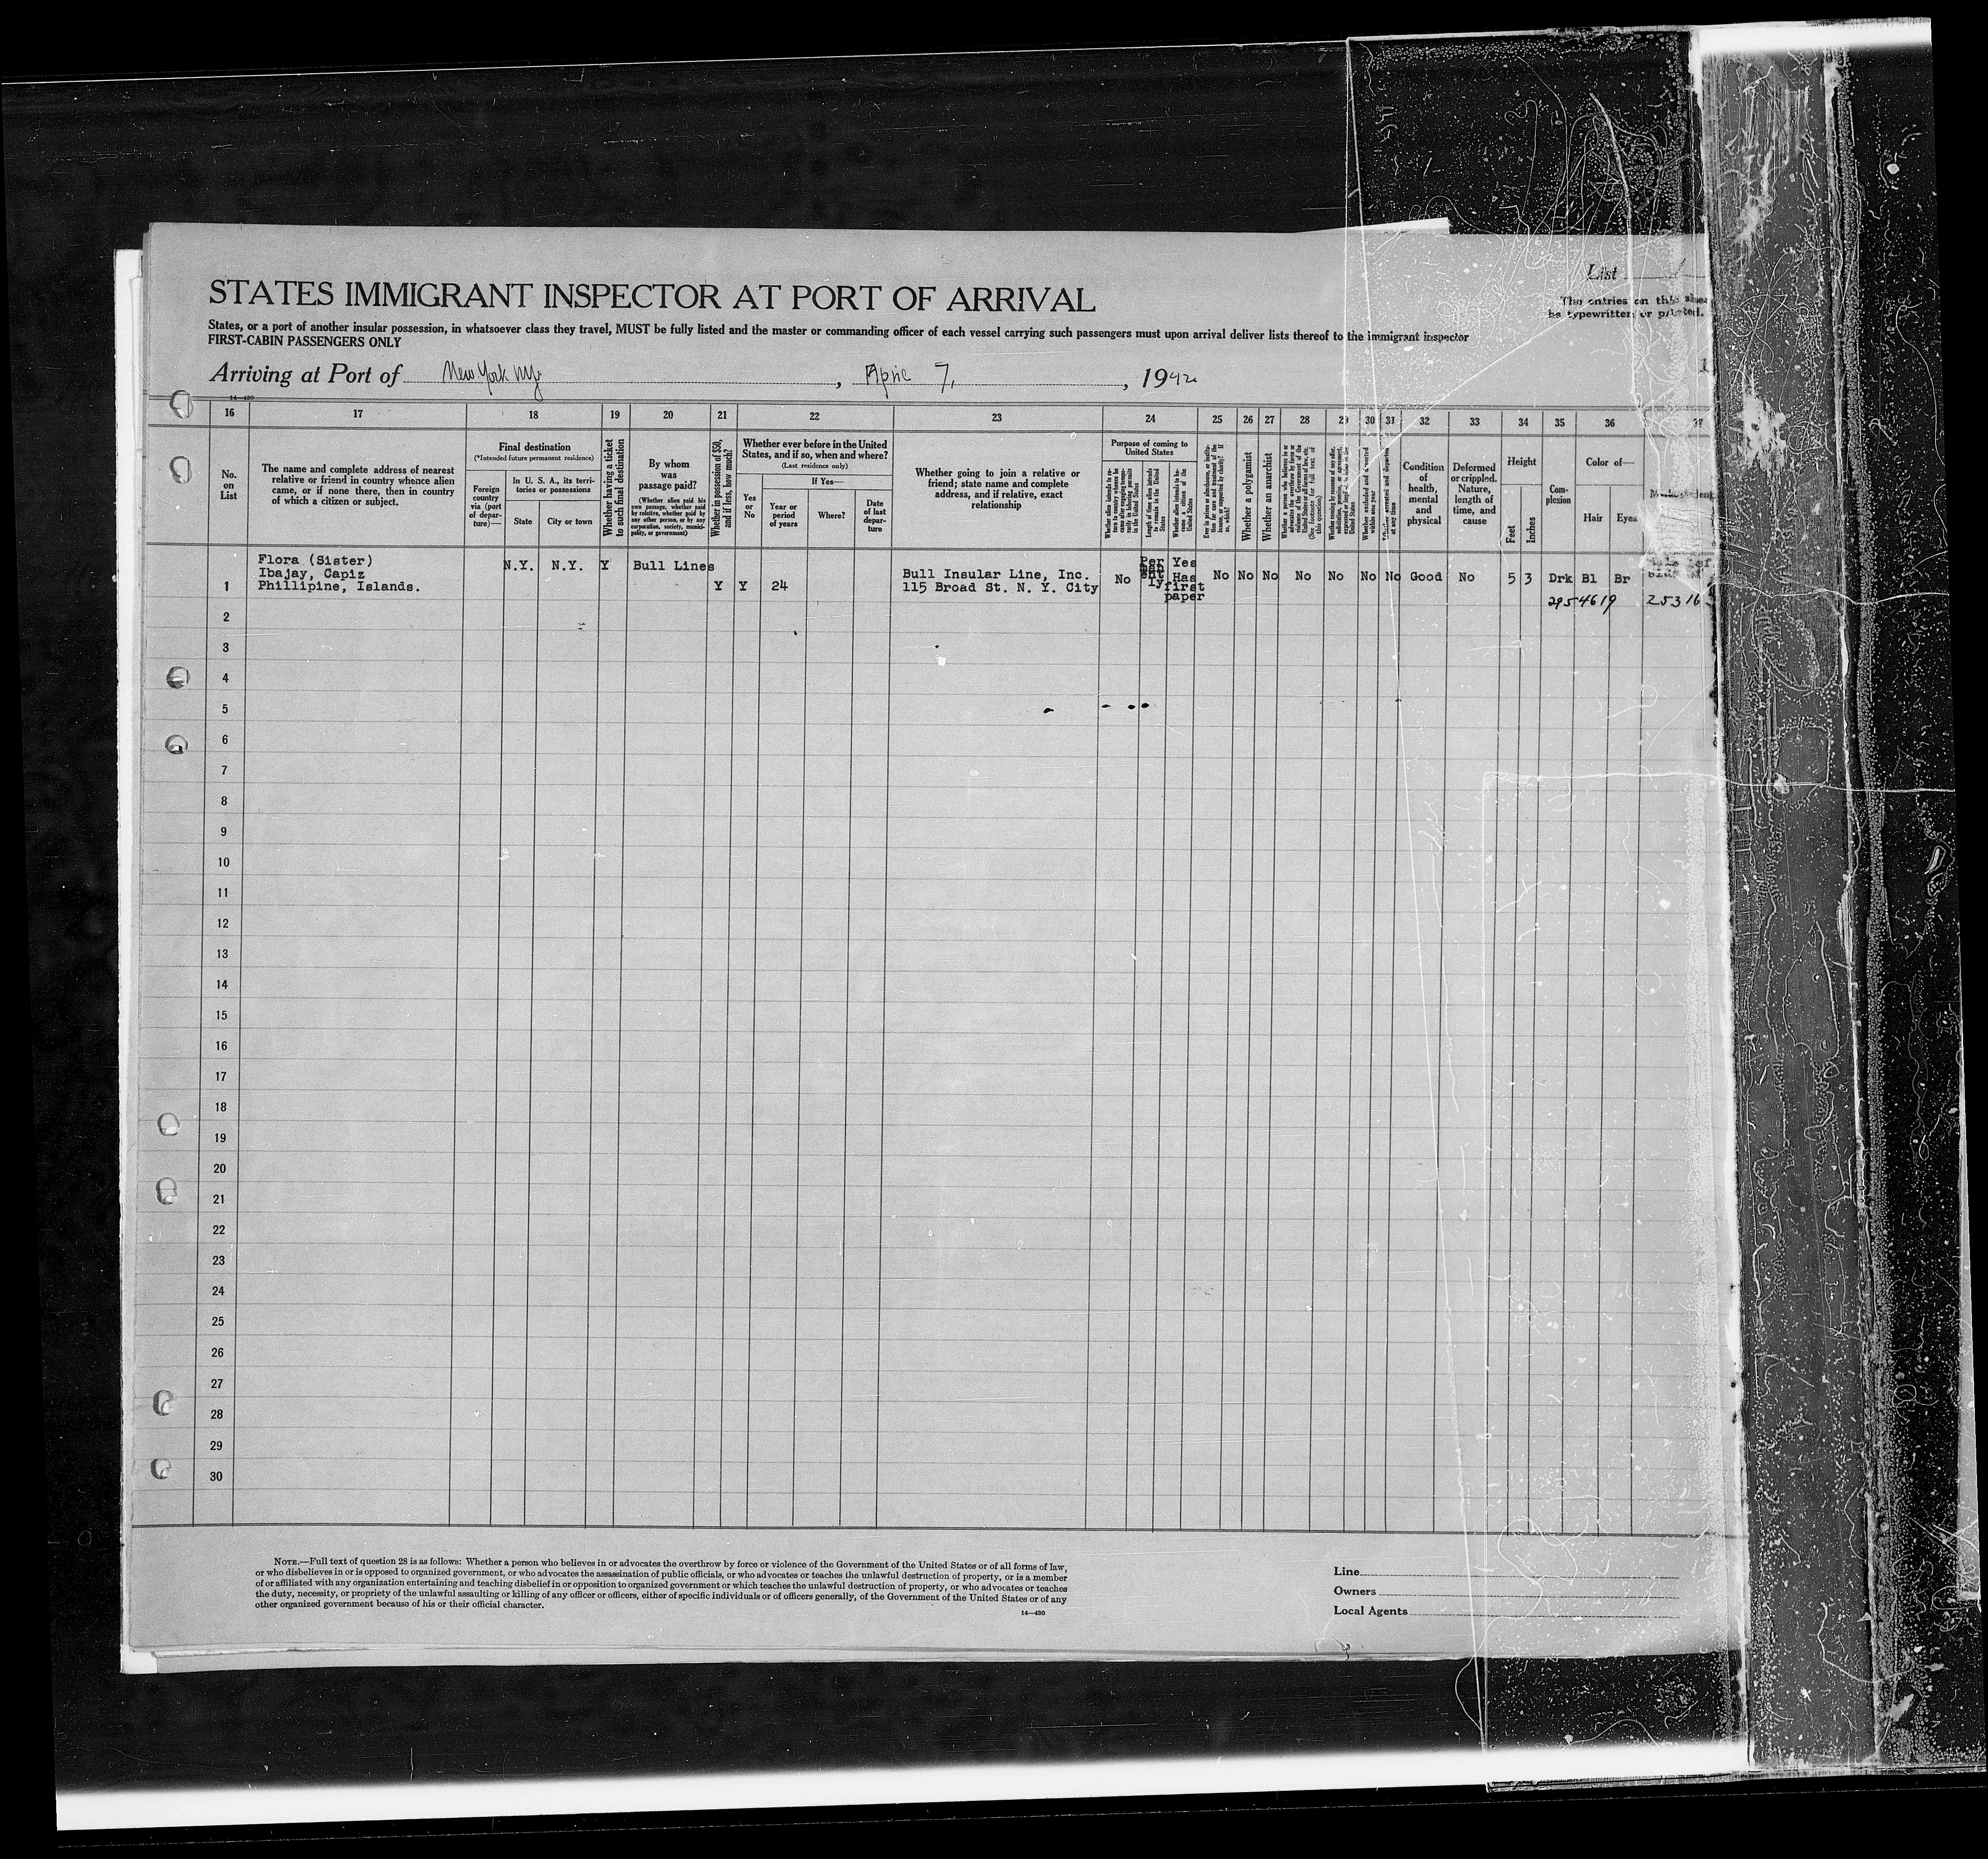 List
The entries on this sheet
be typewritten or printed.
STATES IMMIGRANT INSPECTOR AT PORT OF ARRIVAL
States, or a port of another insular possession, in whatsoever class they travel, MUST be fully listed and the master or commanding officer of each vessel carrying such passengers must upon arrival deliver lists thereof to the immigrant inspector
FIRST-CABIN PASSENGERS ONLY
Arriving at Port of New York NY, April 7, 1942
14—430
16 17 18 19 20 21 22 23 24 25 26 27 28 29 30 31 32 33 34 35 36 37
No.
on
List
The name and complete address of nearest
relative or friend in country whence alien
came, or if none there, then in country
of which a citizen or subject.
Final destination
(*Intended future permanent residence)
Foreign
country
via (port
of depar-
ture)—
In U. S. A., its terri-
tories or possessions
State
City or town
Whether having a ticket
to such final destination
By whom
was
passage paid?
(Whether alien paid his
own passage, whether paid
by relative, whether paid by
any other person, or by any
corporation, society, munici-
pality, or government)
Whether in possession of $50,
and if less, how much?
Whether ever before in the United
States, and if so, when and where?
(Last residence only)
Yes
or
No
If Yes—
Year or
period
of years
Where?
Date
of last
depar-
ture
Whether going to join a relative or
friend; state name and complete
address, and if relative, exact
relationship
Purpose of coming to
United States
Whether a polygamist
Whether an anarchist
Condition
of
health,
mental
and
physical
Deformed
or crippled.
Nature,
length of
time, and
cause
Height
Feet
Inches
Com-
plexion
Color of—
Hair
Eyes
Flora (Sister)
Ibajay, Capiz
Phillipine, Islands.
N.Y. N.Y. Y Bull Lines
Y Y 24
Bull Insular Line, Inc.
115 Broad St. N. Y. City
No
Per
man
ent
ly
Yes
Has
first
paper
No No No No No No No Good No 5 3 Drk Bl Br
2954619 25316
1
2
3
4
5
6
7
8
9
10
11
12
13
14
15
16
17
18
19
20
21
22
23
24
25
26
27
28
29
30
NOTE.—Full text of question 28 is as follows: Whether a person who believes in or advocates the overthrow by force or violence of the Government of the United States or of all forms of law,
or who disbelieves in or is opposed to organized government, or who advocates the assassination of public officials, or who advocates or teaches the unlawful destruction of property, or is a member
of or affiliated with any organization entertaining and teaching disbelief in or opposition to organized government or which teaches the unlawful destruction of property, or who advocates or teaches
the duty, necessity, or propriety of the unlawful assaulting or killing of any officer or officers, either of specific individuals or of officers generally, of the Government of the United States or of any
other organized government because of his or their official character.
14—430
Line
Owners
Local Agents